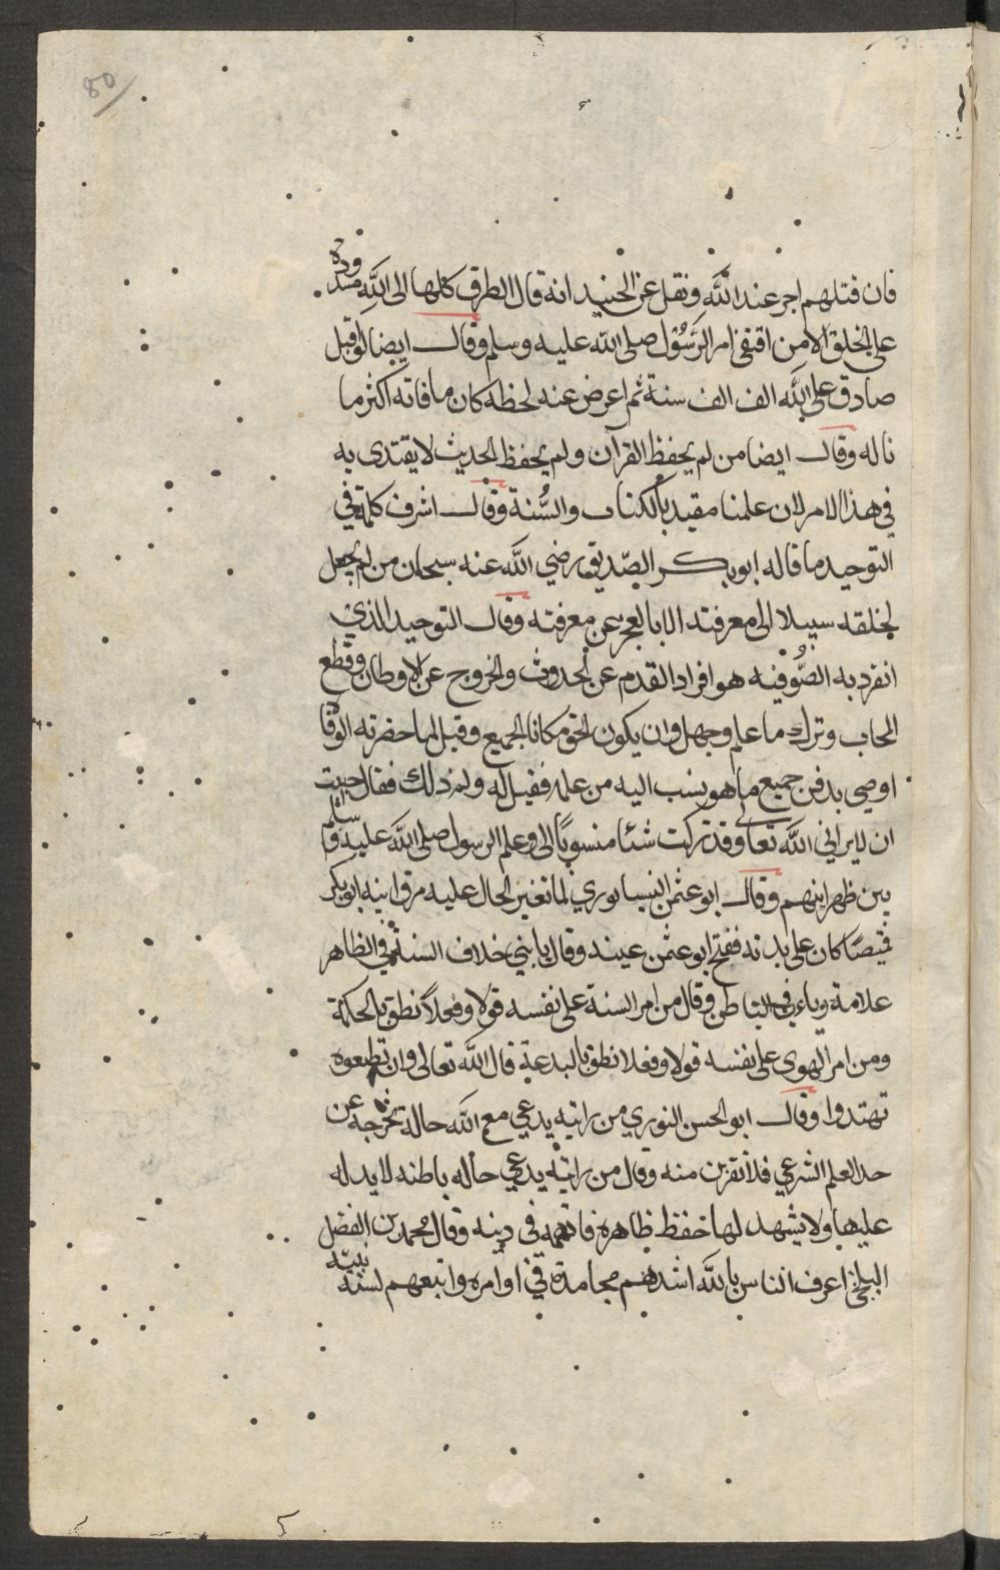 80
فان قتلهم اجر عند الله ونقل عن الجنيد انه قال الطرق كلها الى الله مسدودة
على الخلق الا من اقتفى امر الرسول صلى الله عليه وسلم وقال ايضا لو اقبل
صادق على الله الف الف سنة ثم اعرض عنه لحظه كان ما فاته اكثر ما
ناله وقال ايضا من لم يحفظ القرآن ولم يحفظ الحديث لا يقتدى به
في هذا الامر لان علمنا مقيد بالكتاب والسُّنة وقال اشرف كلمة في
التوحيد ما قاله ابو بكر الصّديق رضي الله عنه سبحان من لم يجعل
لخلقه سبيلا الى معرفته الا بالعجز عن معرفته وقال التوحيد الذي
انفرد به الصُّوفيه هو افراد القدم عن الحدوث والخروج عن الاوطان وقطع
المحاب وترك ما علم وجهل وان يكون الحق مكان الجميع وقيل لما حضرته الوفا
اوصى بدفن جميع ما هو ينسب اليه من علمه فقيل له ولم ذلك فقال احببت
ان لا يراني الله تعالى وقد تركت شئا منسوبًا الي وعلم الرسول صلى الله عليه وسلم
بين ظهرانيهم وقال ابو عثمن النيسابوري لما تغير الحال عليه مزق ابنه ابو بكر
قميصًا كان على بدنه ففتح ابو عثمن عينه وقال يا بني خلاف السنة في الظاهر
علامة رياء في الباطن وقال من امر السنة على نفسه قولا وفعلاً نطق بالحكمة
ومن امر الهوى على نفسه قولا وفعلا نطق بالبدعة قال الله تعالى وان تطيعوه
تهتدوا وقال ابو الحسن النوري من رايته يدعي مع الله حالة تخرجه عن
حد العلم الشرعي فلا تقربن منه وقال من رايته يدعي حاله باطنه لا يدله
عليها ولا يشهد لها حفظ ظاهره فاتهمه في دينه وقال محمد بن الفضل
البلخي اعرف الناس بالله اشدهم مجاهدة في اوامره واتبعهم لسنة نبيّه